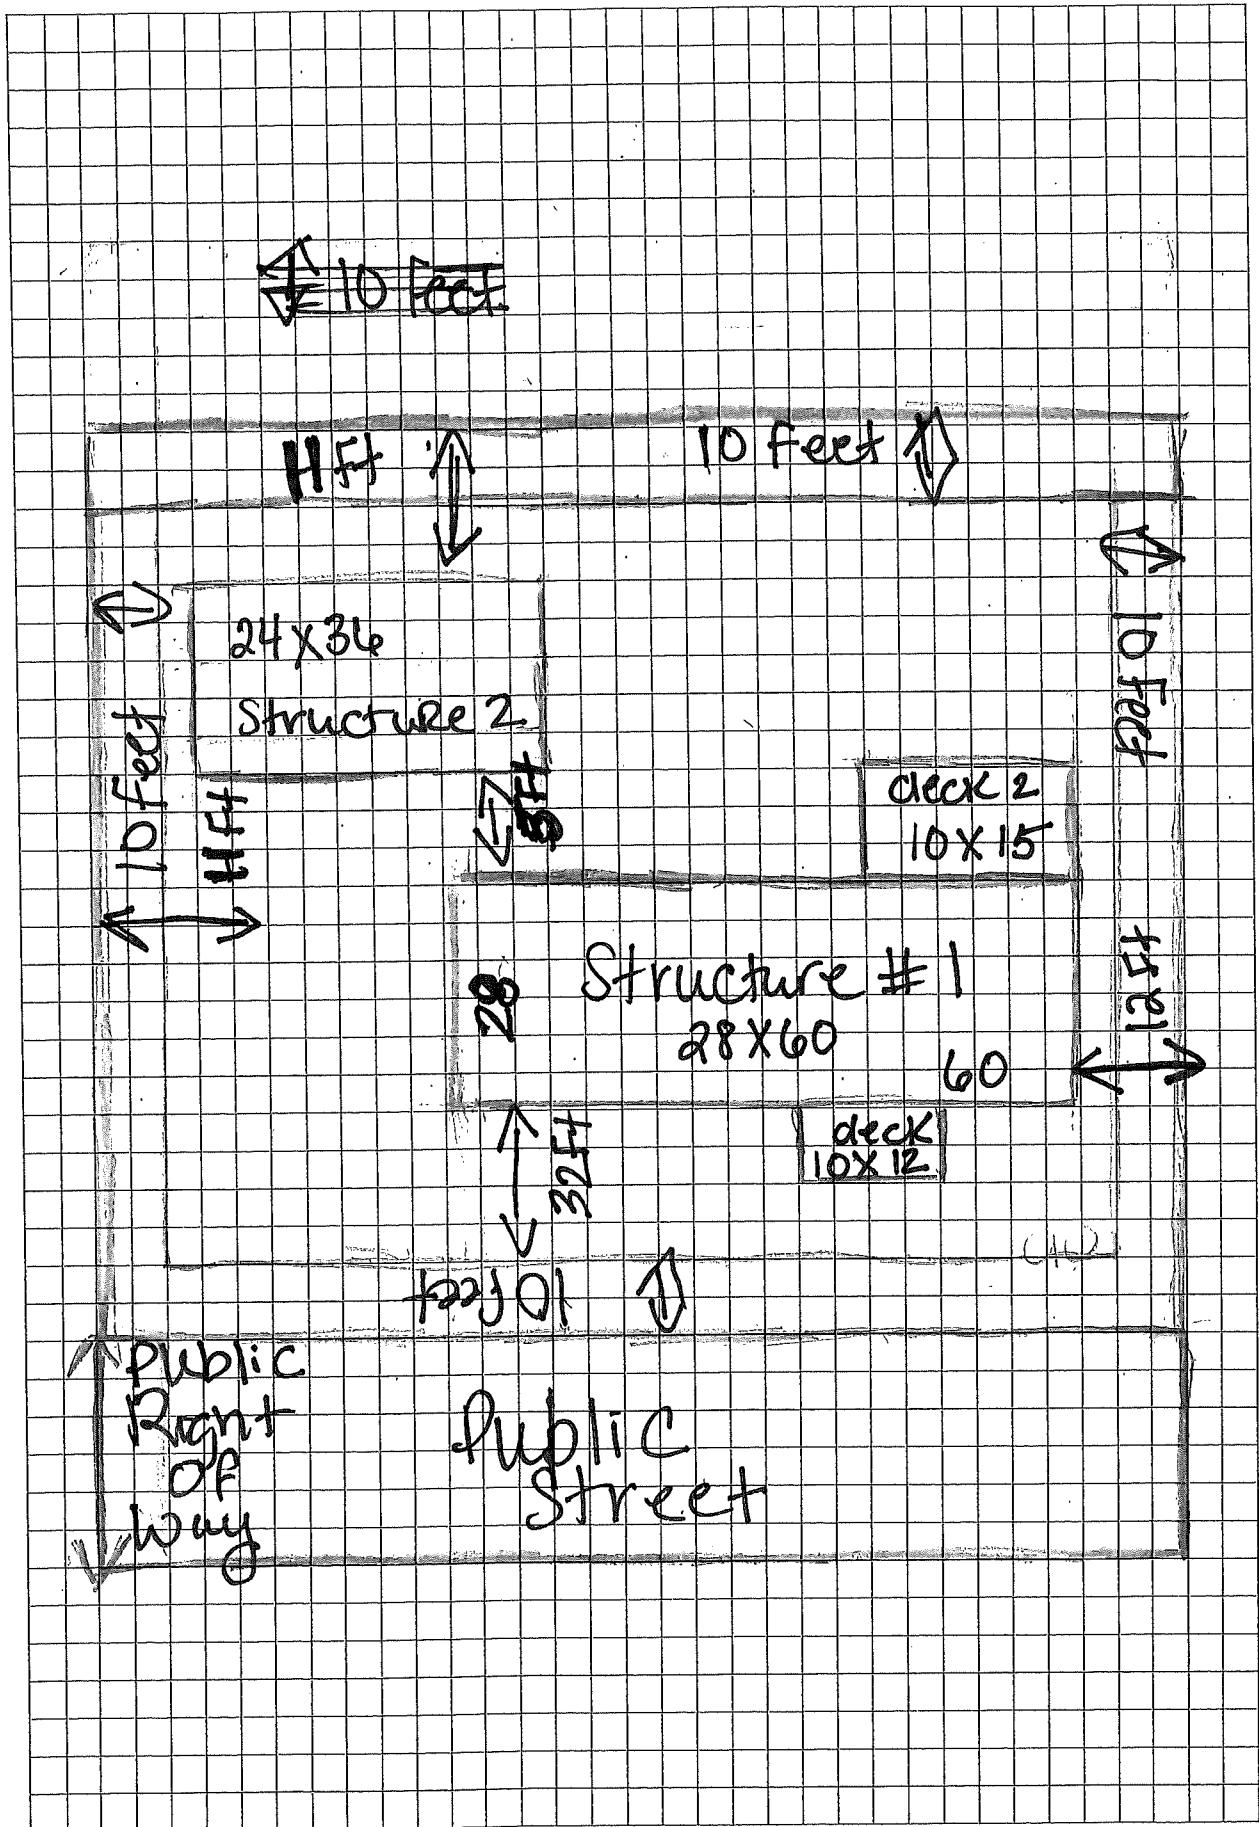 10 feet
H Ft
10 Feet
24X36
Structure 2
10 feet
10 feet
H Ft
deck 2
10 X 15
Structure # 1
28X60
28
60
12 Ft
32 Ft
deck
10X 12
10 feet
Public
Right
Of
Way
Public
Street